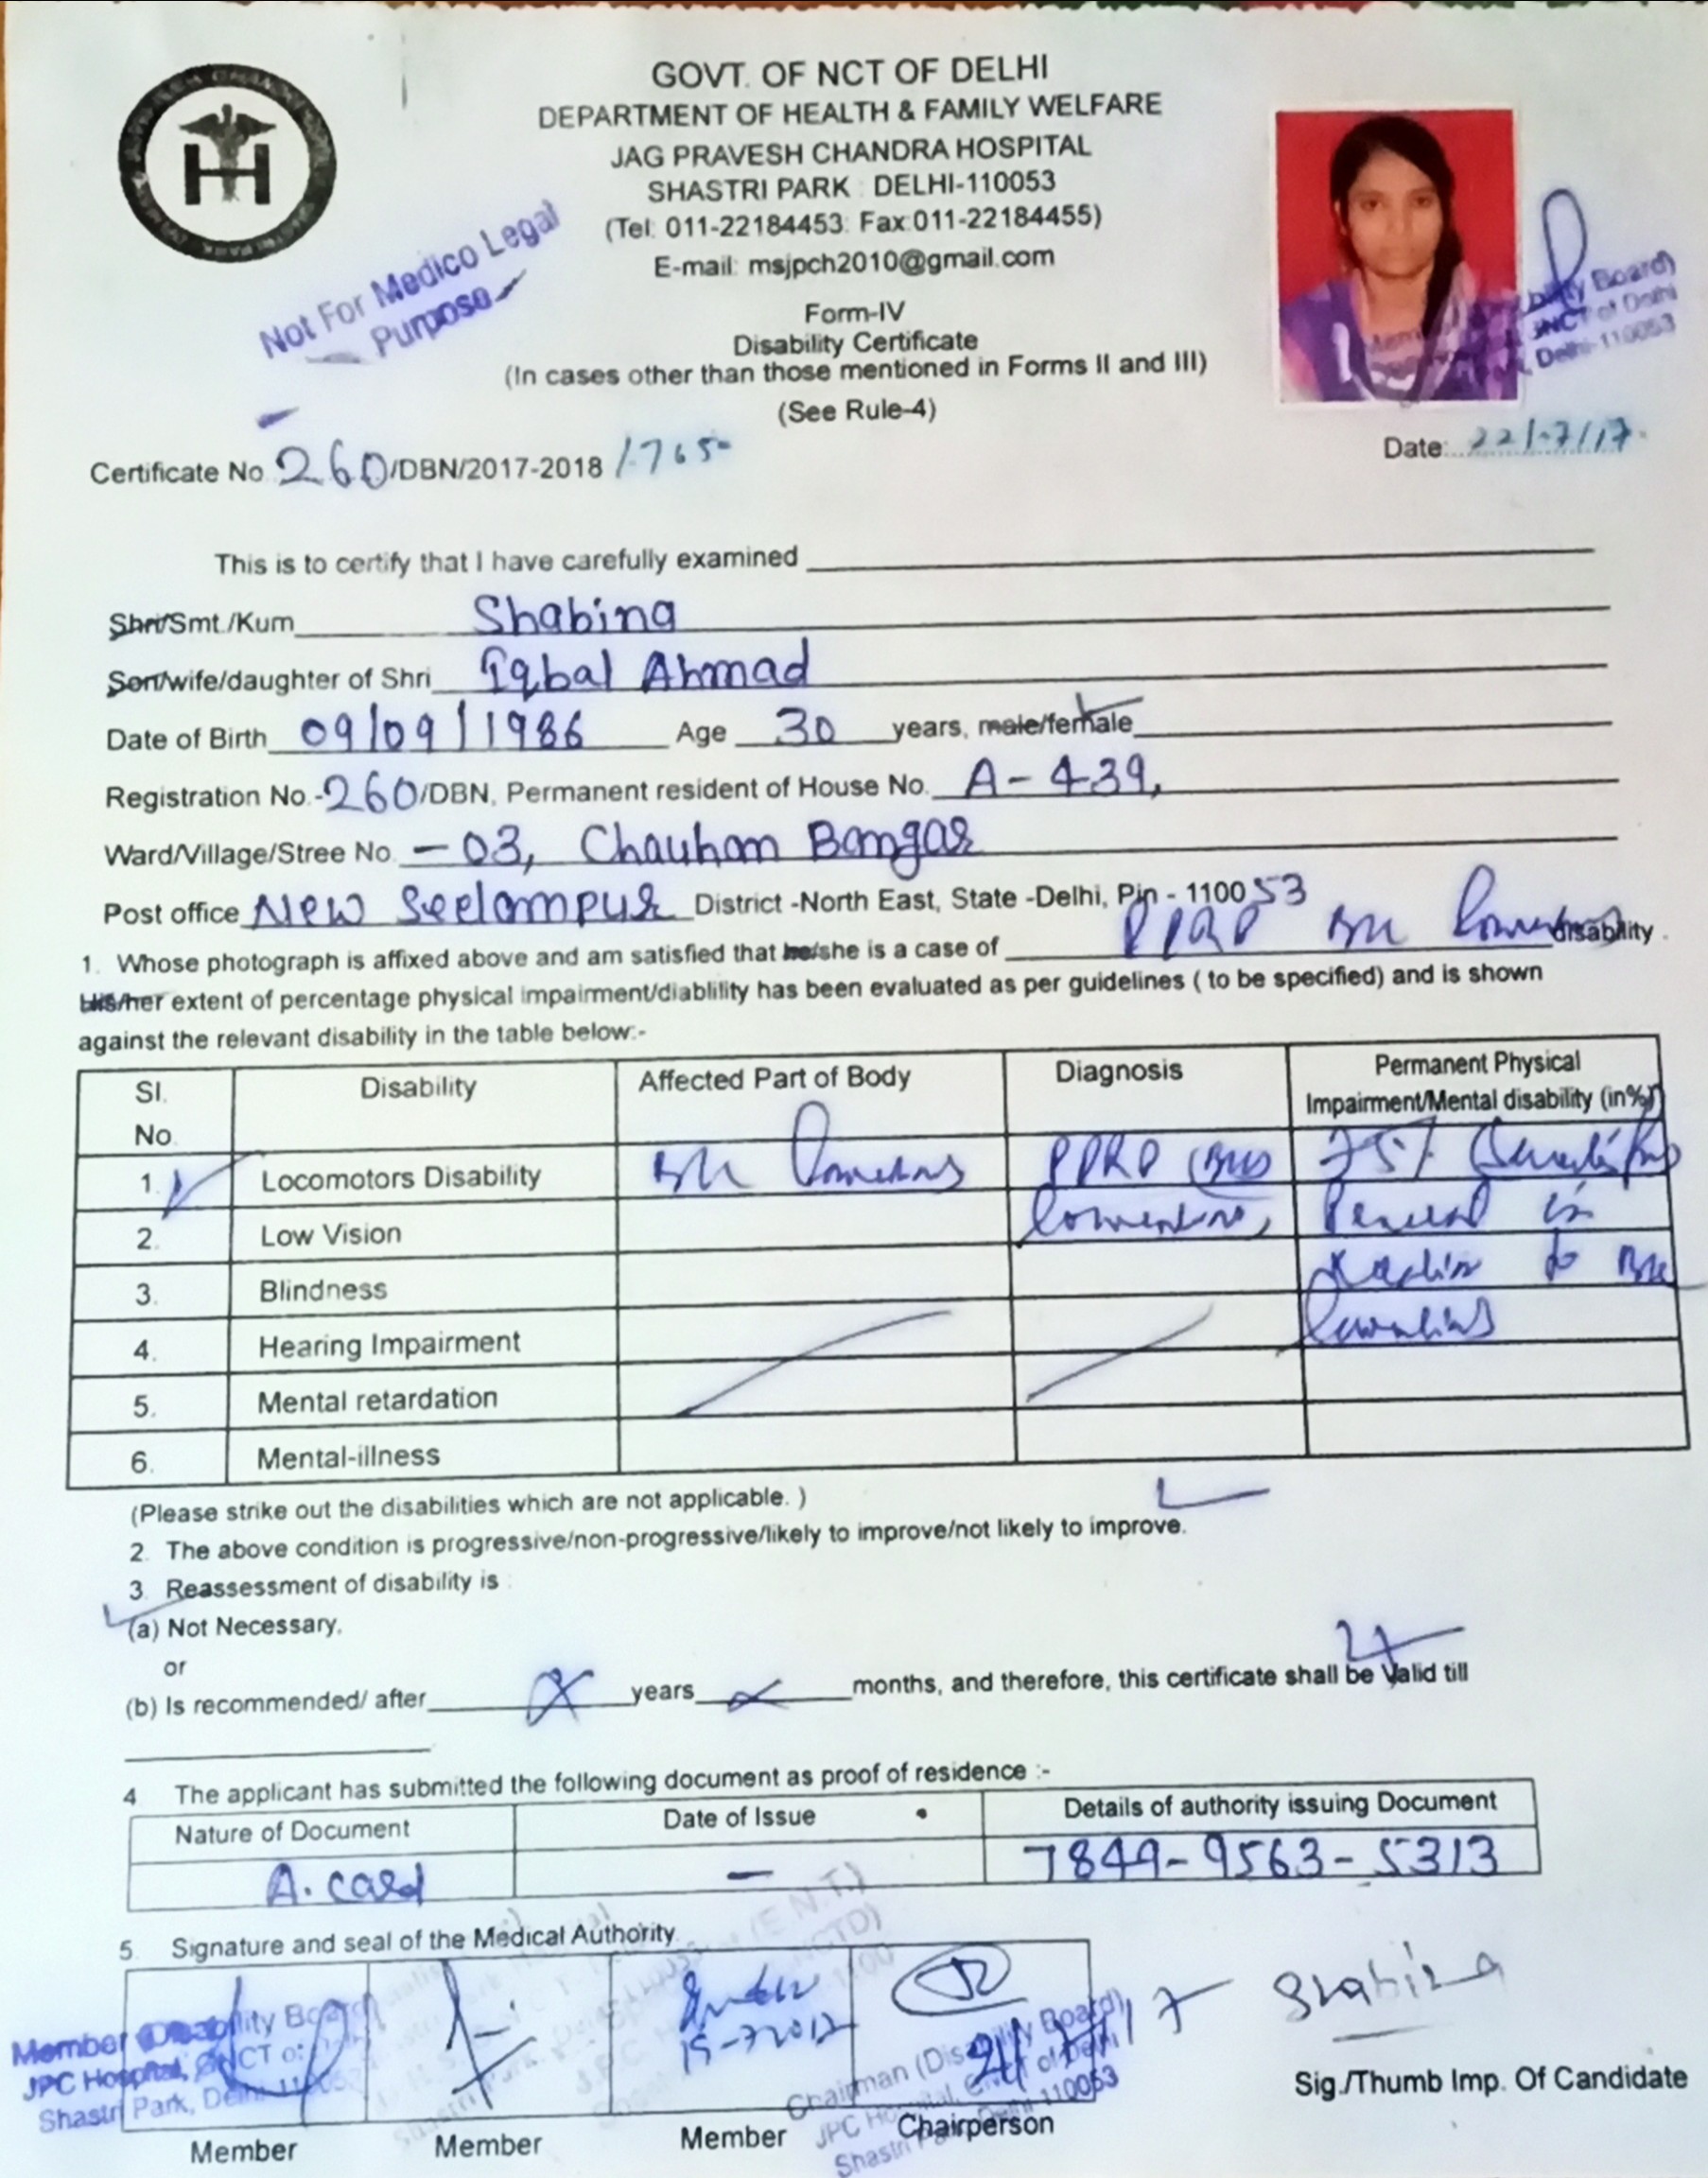 GOVT. OF NCT OF DELHI
DEPARTMENT OF HEALTH & FAMILY WELFARE
JAG PRAVESH CHANDRA HOSPITAL
SHASTRI PARK : DELHI-110053
(Tel: 011-22184453: Fax:011-22184455)
E-mail: msjpch2010@gmail.com
Not For Medico Legal
Purpose
Form-IV
Disability Certificate
(In cases other than those mentioned in Forms II and III)
(See Rule-4)
Board)
Delhi-110053
Certificate No. 260/DBN/2017-2018 Date:
This is to certify that I have carefully examined
Shri/Smt./Kum Shabina
Son/wife/daughter of Shri Iqbal Ahmad
Date of Birth 09/09/1986 Age 30 years, male/female
Registration No.-260/DBN, Permanent resident of House No. A-439,
Ward/Village/Stree No. -03, Chauhan Bangar
Post office New Seelampur District -North East, State -Delhi, Pin - 110053
1. Whose photograph is affixed above and am satisfied that he/she is a case of PPRP disability.
His/her extent of percentage physical impairment/diablility has been evaluated as per guidelines ( to be specified) and is shown
against the relevant disability in the table below:-
Sl. No. Disability Affected Part of Body Diagnosis Permanent Physical Impairment/Mental disability (in%)
1. Locomotors Disability PPRP 75%
2. Low Vision
3. Blindness
4. Hearing Impairment
5. Mental retardation
6. Mental-illness
(Please strike out the disabilities which are not applicable. )
2. The above condition is progressive/non-progressive/likely to improve/not likely to improve.
3. Reassessment of disability is :
(a) Not Necessary.
or
(b) Is recommended/ after years months, and therefore, this certificate shall be Valid till
4. The applicant has submitted the following document as proof of residence :-
Nature of Document Date of Issue Details of authority issuing Document
A. card - 7849-9563-5313
5. Signature and seal of the Medical Authority.
Shabina
Member Disability Board
JPC Hospital, GNCT of
Shastri Park, Delhi-110053
Chairman (Disability Board)
JPC Hospital, GNCT of Delhi
Shastri Park, Delhi-110053
Member Member Member Chairperson
Sig./Thumb Imp. Of Candidate